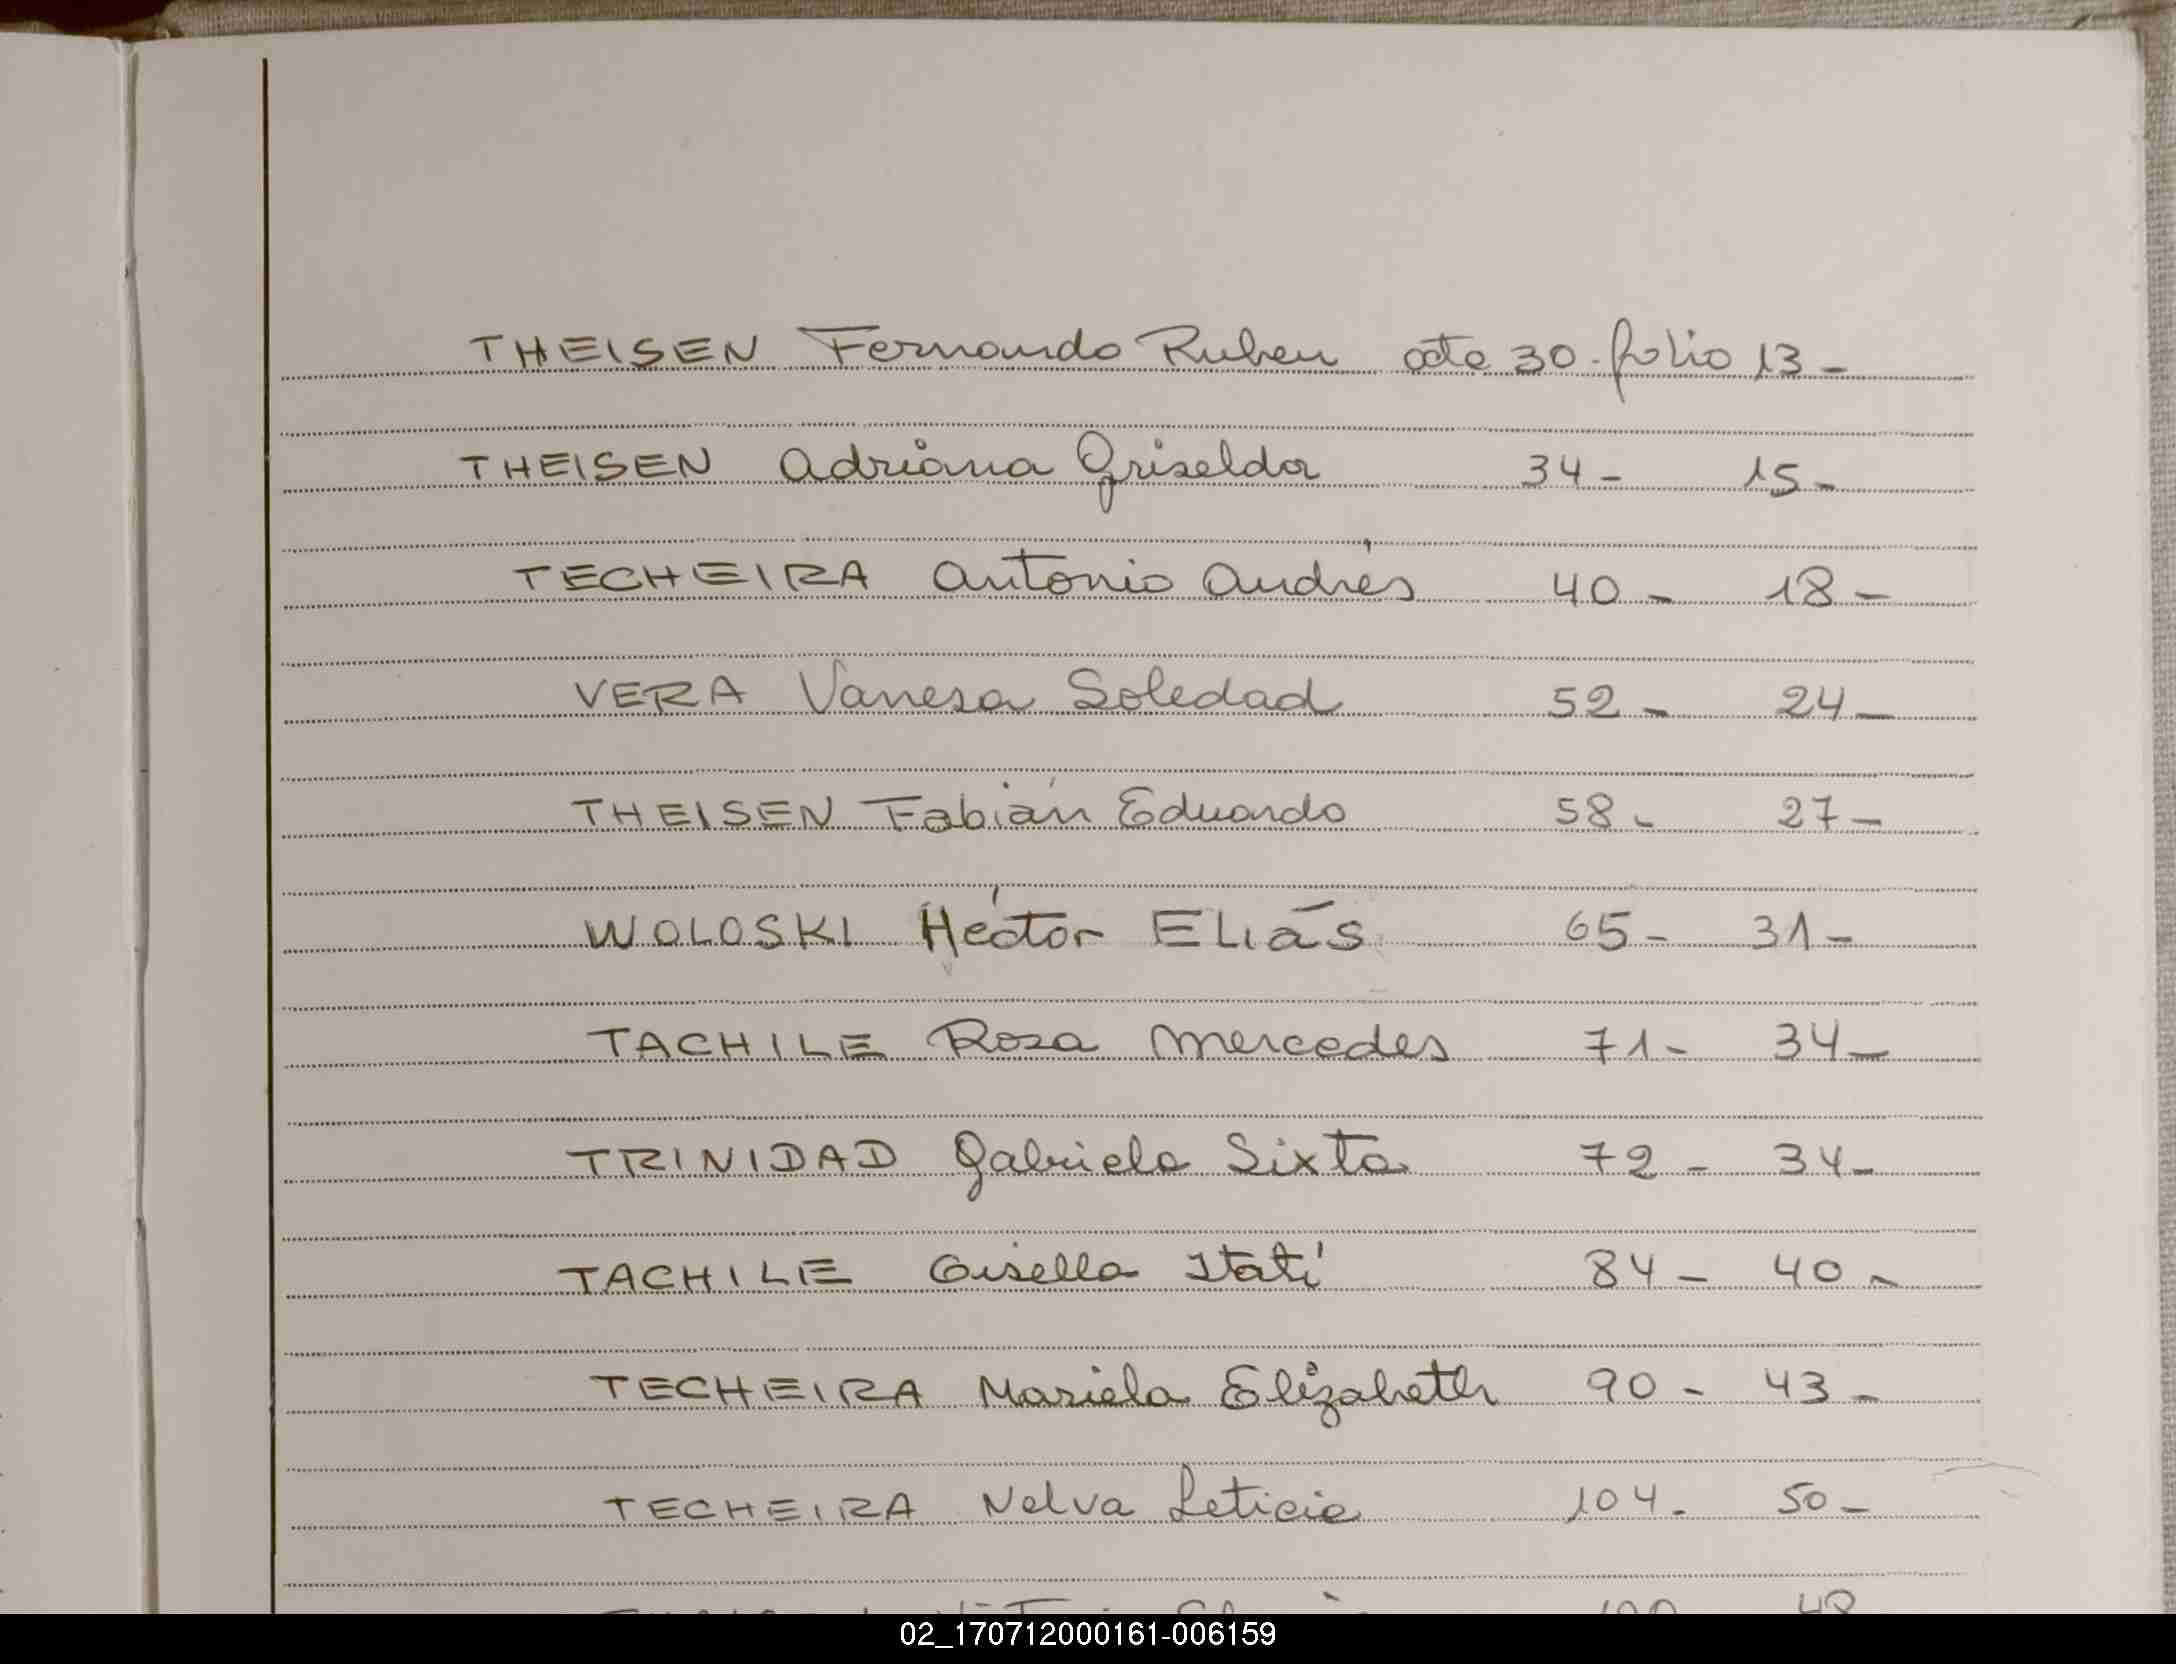 THEISEN Fernando Ruben acta 30. folio 13 -
THEISEN Adriana Griselda 34 - 15 -
TECHEIRA Antonio Andrés 40 - 18 -
VERA Vanesa Soledad 52 - 24 -
THEISEN Fabián Eduardo 58 - 27 -
WOLOSKI Héctor ELiás 65 - 31 -
TACHILE Rosa Mercedes 71 - 34 -
TRINIDAD Gabriela Sixta 72 - 34 -
TACHILE Gisella Itatí 84 - 40 -
TECHEIRA Mariela Elizabeth 90 - 43 -
TECHEIRA Nelva Leticia 104 - 50 -
02_170712000161-006159